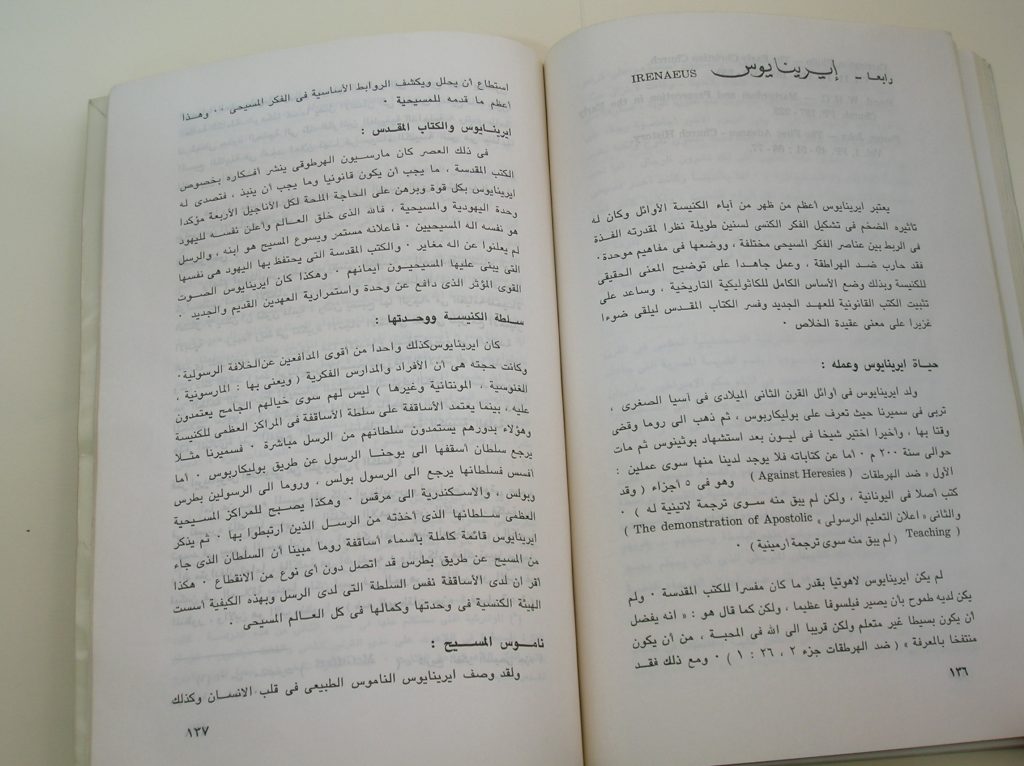 رابعا - إيرينايوس IRENAEUS
يعتبر ايرينايوس اعظم من ظهر من آباء الكنيسة الأوائل وكان له
تأثيره الضخم فى تشكيل الفكر الكنسى لسنين طويلة نظرا لمقدرته الفذة
فى الربط بين عناصر الفكر المسيحى مختلفة ، ووضعها فى مفاهيم موحدة .
فقد حارب ضد الهراطقة ، وعمل جاهدا على توضيح المعنى الحقيقى
للكنيسة وبذلك وضع الأساس الكامل للكاثوليكية التاريخية ، وساعد على
تثبيت الكتب القانونية للعهد الجديد وفسر الكتاب المقدس ليلقى ضوءا
غزيرا على معنى عقيدة الخلاص .
حياة ايرينايوس وعمله :
ولد ايرينايوس فى اوائل القرن الثانى الميلادى فى آسيا الصغرى ،
تربى فى سميرنا حيث تعرف على بوليكاربوس ، ثم ذهب الى روما وقضى
وقتا بها ، وأخيرا اختير شيخا فى ليون بعد استشهاد بوثينوس ثم مات
حوالى سنة ٢٠٠ م . اما عن كتاباته فلا يوجد لدينا منها سوى عملين :
الأول « ضد الهرطقات (Against Heresies) وهو فى ٥ أجزاء ( وقد
كتب أصلا فى اليونانية ، ولكن لم يبق منه سوى ترجمة لاتينية له ) .
والثانى « اعلان التعليم الرسولى » The demonstration of Apostolic )
( Teaching ( لم يبق منه سوى ترجمة أرمينية ) .
لم يكن ايرينايوس لاهوتيا بقدر ما كان مفسرا للكتب المقدسة . ولم
يكن لديه طموح بأن يصير فيلسوفا عظيما ، ولكن كما قال هو : « انه يفضل
ان يكون بسيطا غير متعلم ولكن قريبا الى الله فى المحبة ، من ان يكون
منتفخا بالمعرفة » ( ضد الهرطقات جزء ٢ ، ٢٦ : ١ ) . ومع ذلك فقد
١٣٦
استطاع أن يحلل ويكشف الروابط الأساسية فى الفكر المسيحى . . وهذا
اعظم ما قدمه للمسيحية .
ايرينايوس والكتاب المقدس :
فى ذلك العصر كان مارسيون الهرطوقى ينشر افكاره بخصوص
الكتب المقدسة ، ما يجب أن يكون قانونيا وما يجب أن ينبذ ، فتصدى له
ايرينايوس بكل قوة وبرهن على الحاجة الملحة لكل الأناجيل الأربعة مؤكدا
وحدة اليهودية والمسيحية ، فالله الذى خلق العالم واعلن نفسه لليهود
هو نفسه اله المسيحيين . فاعلانه مستمر ويسوع المسيح هو ابنه ، والرسل
لم يعلنوا عن اله مغاير . والكتب المقدسة التى يحتفظ بها اليهود هى نفسها
التى يبنى عليها المسيحيون ايمانهم . وهكذا كان ايرينايوس الصوت
القوى المؤثر الذى دافع عن وحدة واستمرارية العهدين القديم والجديد .
سلطة الكنيسة ووحدتها :
كان ايرينايوس كذلك واحدا من أقوى المدافعين عن الخلافة الرسولية .
وكانت حجته هى أن الأفراد والمدارس الفكرية ( ويعنى بها : المارسونية ،
الغنوسية ، المونتانية وغيرها ) ليس لهم سوى خيالهم الجامح يعتمدون
عليه ، بينما يعتمد الأساقفة على سلطة الأساقفة فى المراكز العظمى للكنيسة
وهؤلاء بدورهم يستمدون سلطانهم من الرسل مباشرة . فسميرنا مثلا
يرجع سلطان أسقفها الى يوحنا الرسول عن طريق بوليكاربوس . اما
أفسس فسلطانها يرجع الى الرسول بولس ، وروما الى الرسولين بطرس
وبولس ، والاسكندرية الى مرقس . وهكذا يصبح للمراكز المسيحية
العظمى سلطانها الذى أخذته من الرسل الذين ارتبطوا بها . ثم يذكر
ايرينايوس قائمة كاملة بأسماء أساقفة روما مبينا أن السلطان الذى جاء
من المسيح عن طريق بطرس قد اتصل دون أى نوع من الانقطاع . هكذا
اقر ان لدى الأساقفة نفس السلطة التى لدى الرسل وبهذه الكيفية أسست
الهيئة الكنسية فى وحدتها وكمالها فى كل العالم المسيحى .
ناموس المسيح :
ولقد وصف ايرينايوس الناموس الطبيعى فى قلب الانسان وكذلك
١٣٧